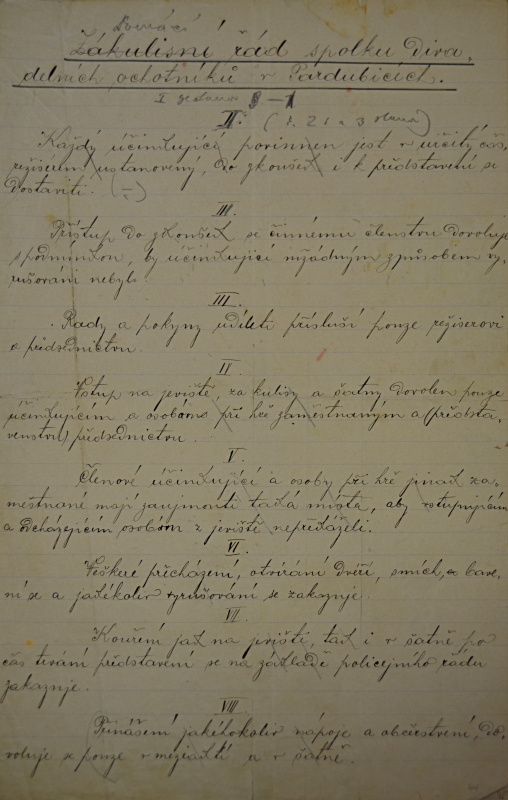 Domácí
Zákulisní řád spolku Diva,
delních ochotníků v Pardubicích.
I 3–1
II. (
Každý účinkující povinnen jest v určitý čas,
režisérem ustanovený, do zkoušek i k představení se
dostaviti.
III.
Přístup do zkoušek se činnému členstvu dovoluje
s podmínkou, by účinkující nižádným způsobem vy,
rušováni nebyli.
III.
Rady a pokyny udíleti přísluší pouze režiserovi
a předsednictvu.
IV.
Vstup na jeviště, za kulisy a šatny dovolen pouze
účinkujícím a osobám při hře zaměstnaným a (předsta,
venstvu) předsednictvu.
V.
Členové účinkující a osoby při hře jinak za,
městnané mají zaujmouti taká místa, aby vstupujícím
a odcházejícím osobám z jeviště nepřekáželi.
VI.
Veškeré přicházení, otvírání dveří, smích, bave,
ní se a jakékoliv vyrušování se zakazuje.
VII.
Kouření jak na jevišti, tak i v šatně po
čas trvání představení se na základě policejního řádu
zakazuje.
VIII.
Přinášení jakéhokoliv nápoje a občerstvení, do,
voluje se pouze v meziaktí a v šatně.